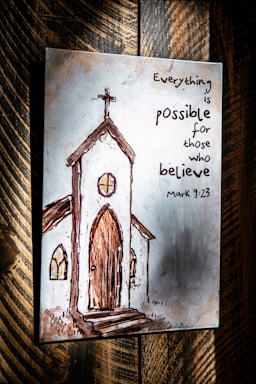 Everything
is
possible
for
those
who
believe
Mark 9:23